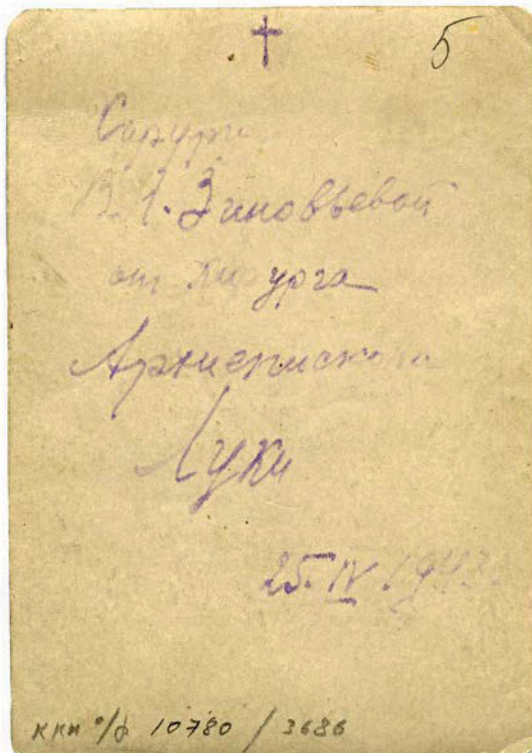 5
В. А. Зиновьевой
от хирурга
Архиепископа
Луки
25. IV 1943.
ккм о/ф 10780 / 3686